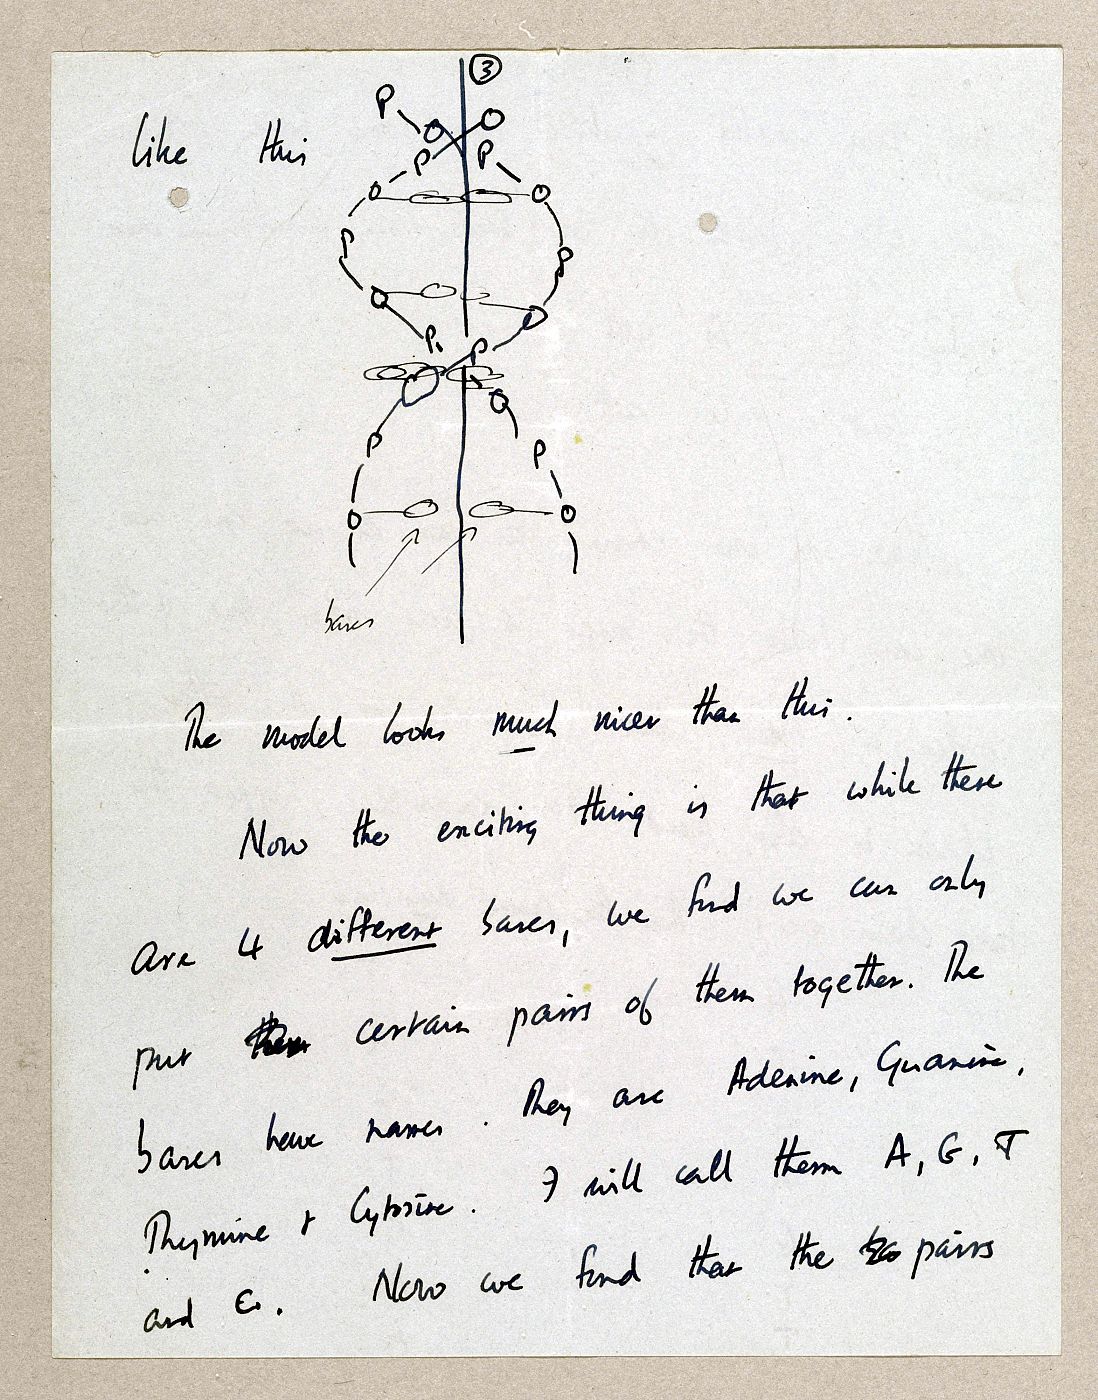 3
P O
O
like this P P
O O
P P
O O
P P
O O
P P
O O
bases
The model looks much nicer than this.
Now the exciting thing is that while these
are 4 different bases, we find we can only
put certain pairs of them together. The
bases have names. They are Adenine, Guanine,
Thymine & Cytosine. I will call them A, G, T
and C. Now we find that the pairs